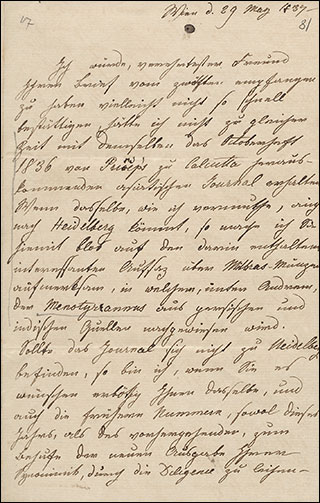 17
Wien d. 29 May 1837
81
Ich würde, verehrtester Freund
Ihren Brief vom zwölften empfangen
zu haben vielleicht nicht so schnell
bestättigen, hätte ich nicht zu gleicher
Zeit mit demselben das Octoberheft
1836 von zu Calcutta heraus-
kommenden asiatischen Journal erhalten
Wenn dasselbe, wie ich vermuthe, auch
nach Heidelberg kömmt, so mache ich Sie
hiemit blos auf den darin enthaltenen
interessanten Aufsaz über Mithras-Münzen
aufmerksam, in welchem, unter Anderem,
der Menotyrannus aus persischen und
indischen Quellen nachgewiesen wird.
Sollte das Journal sich nicht zu Heidelberg
befinden, so bin ich, wenn Sie es
wünschen erbötig Ihnen dasselbe, und
auch die früheren Nummern, sowol dieses
Jahres, als des vorhergehenden, zum
Behufe der neuen Ausgabe Ihrer
Symbolik, durch die Diligence zu leihen-